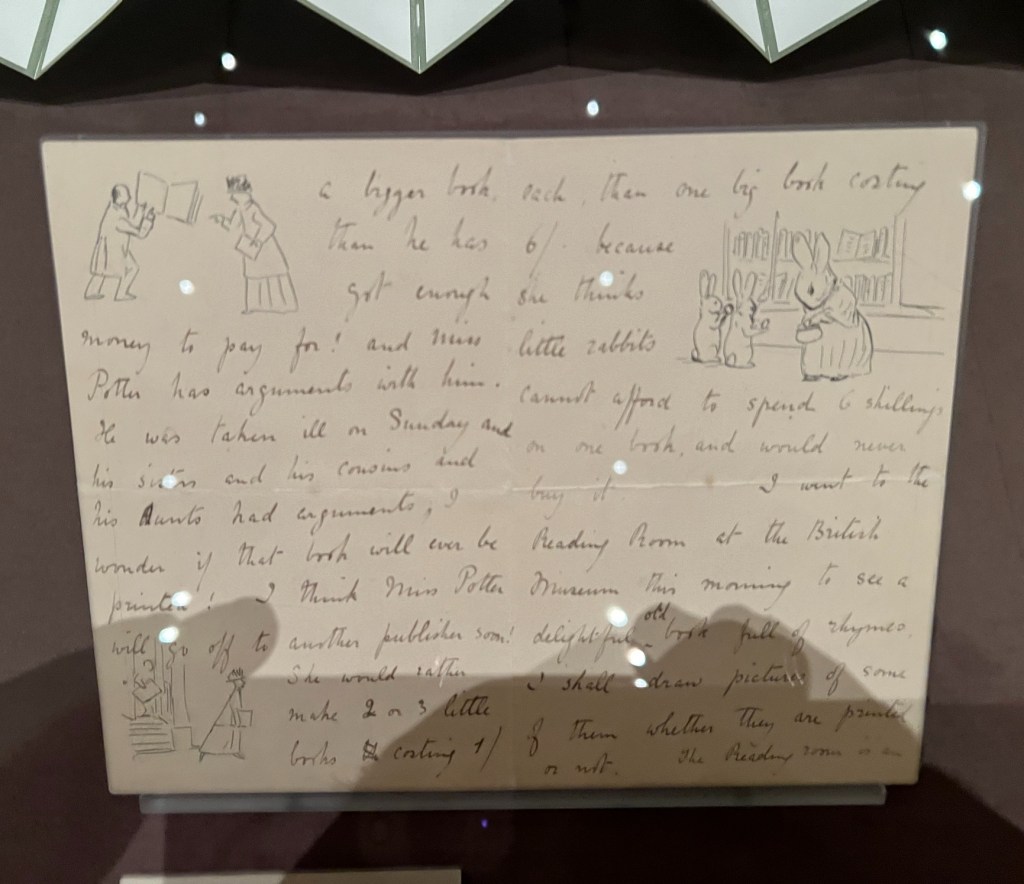 a bigger book.
than he has
got enough
money to pay for! and Miss
Potter has arguments with him.
He was taken ill on Sunday and
his sisters and his cousins and
his Aunts had arguments; I
wonder if that book will ever be
printed! I think Miss Potter
will go off to another publisher soon!
She would rather
make 2 or 3 little
books costing 1/
each, than one big book costing
6/- because
she thinks
little rabbits
cannot afford to spend 6 shillings
on one book, and would never
buy it. I went to the
Reading Room at the British
Museum this morning to see a
delightful old book full of rhymes.
I shall draw pictures of some
of them whether they are printed
or not. The Reading room is an